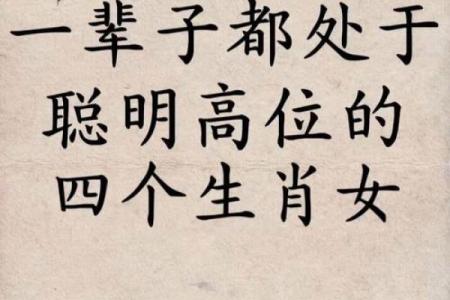 一辈子都处于
聪明高位的
四个生肖女